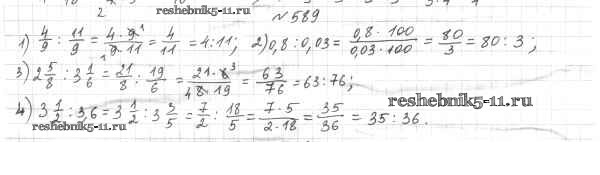 2
reshebnik5-11.ru
№589
1) 4/9 : 11/9 = 4·9/9·11 = 4/11 = 4:11; 2) 0,8 : 0,03 = 0,8·100/0,03·100 = 80/3 = 80 : 3;
3) 2 5/8 : 3 1/6 = 21/8 : 19/6 = 21·6 3/4 8·19 = 63/76 = 63:76;
reshebnik5-11.ru
4) 3 1/2 : 3,6 = 3 1/2 : 3 3/5 = 7/2 : 18/5 = 7·5/2·18 = 35/36 = 35 : 36.
reshebnik5-11.ru